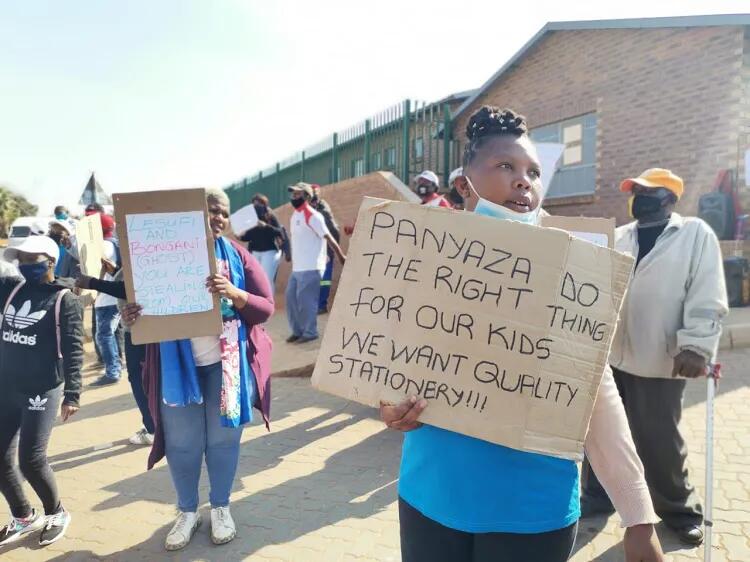 LESUFI
AND
BONGANI
(GHOST)
YOU ARE
STEALING
FROM OUR
CHILDREN
PANYAZA DO
THE RIGHT THING
FOR OUR KIDS
WE WANT QUALITY
STATIONERY!!!
adidas
adidas